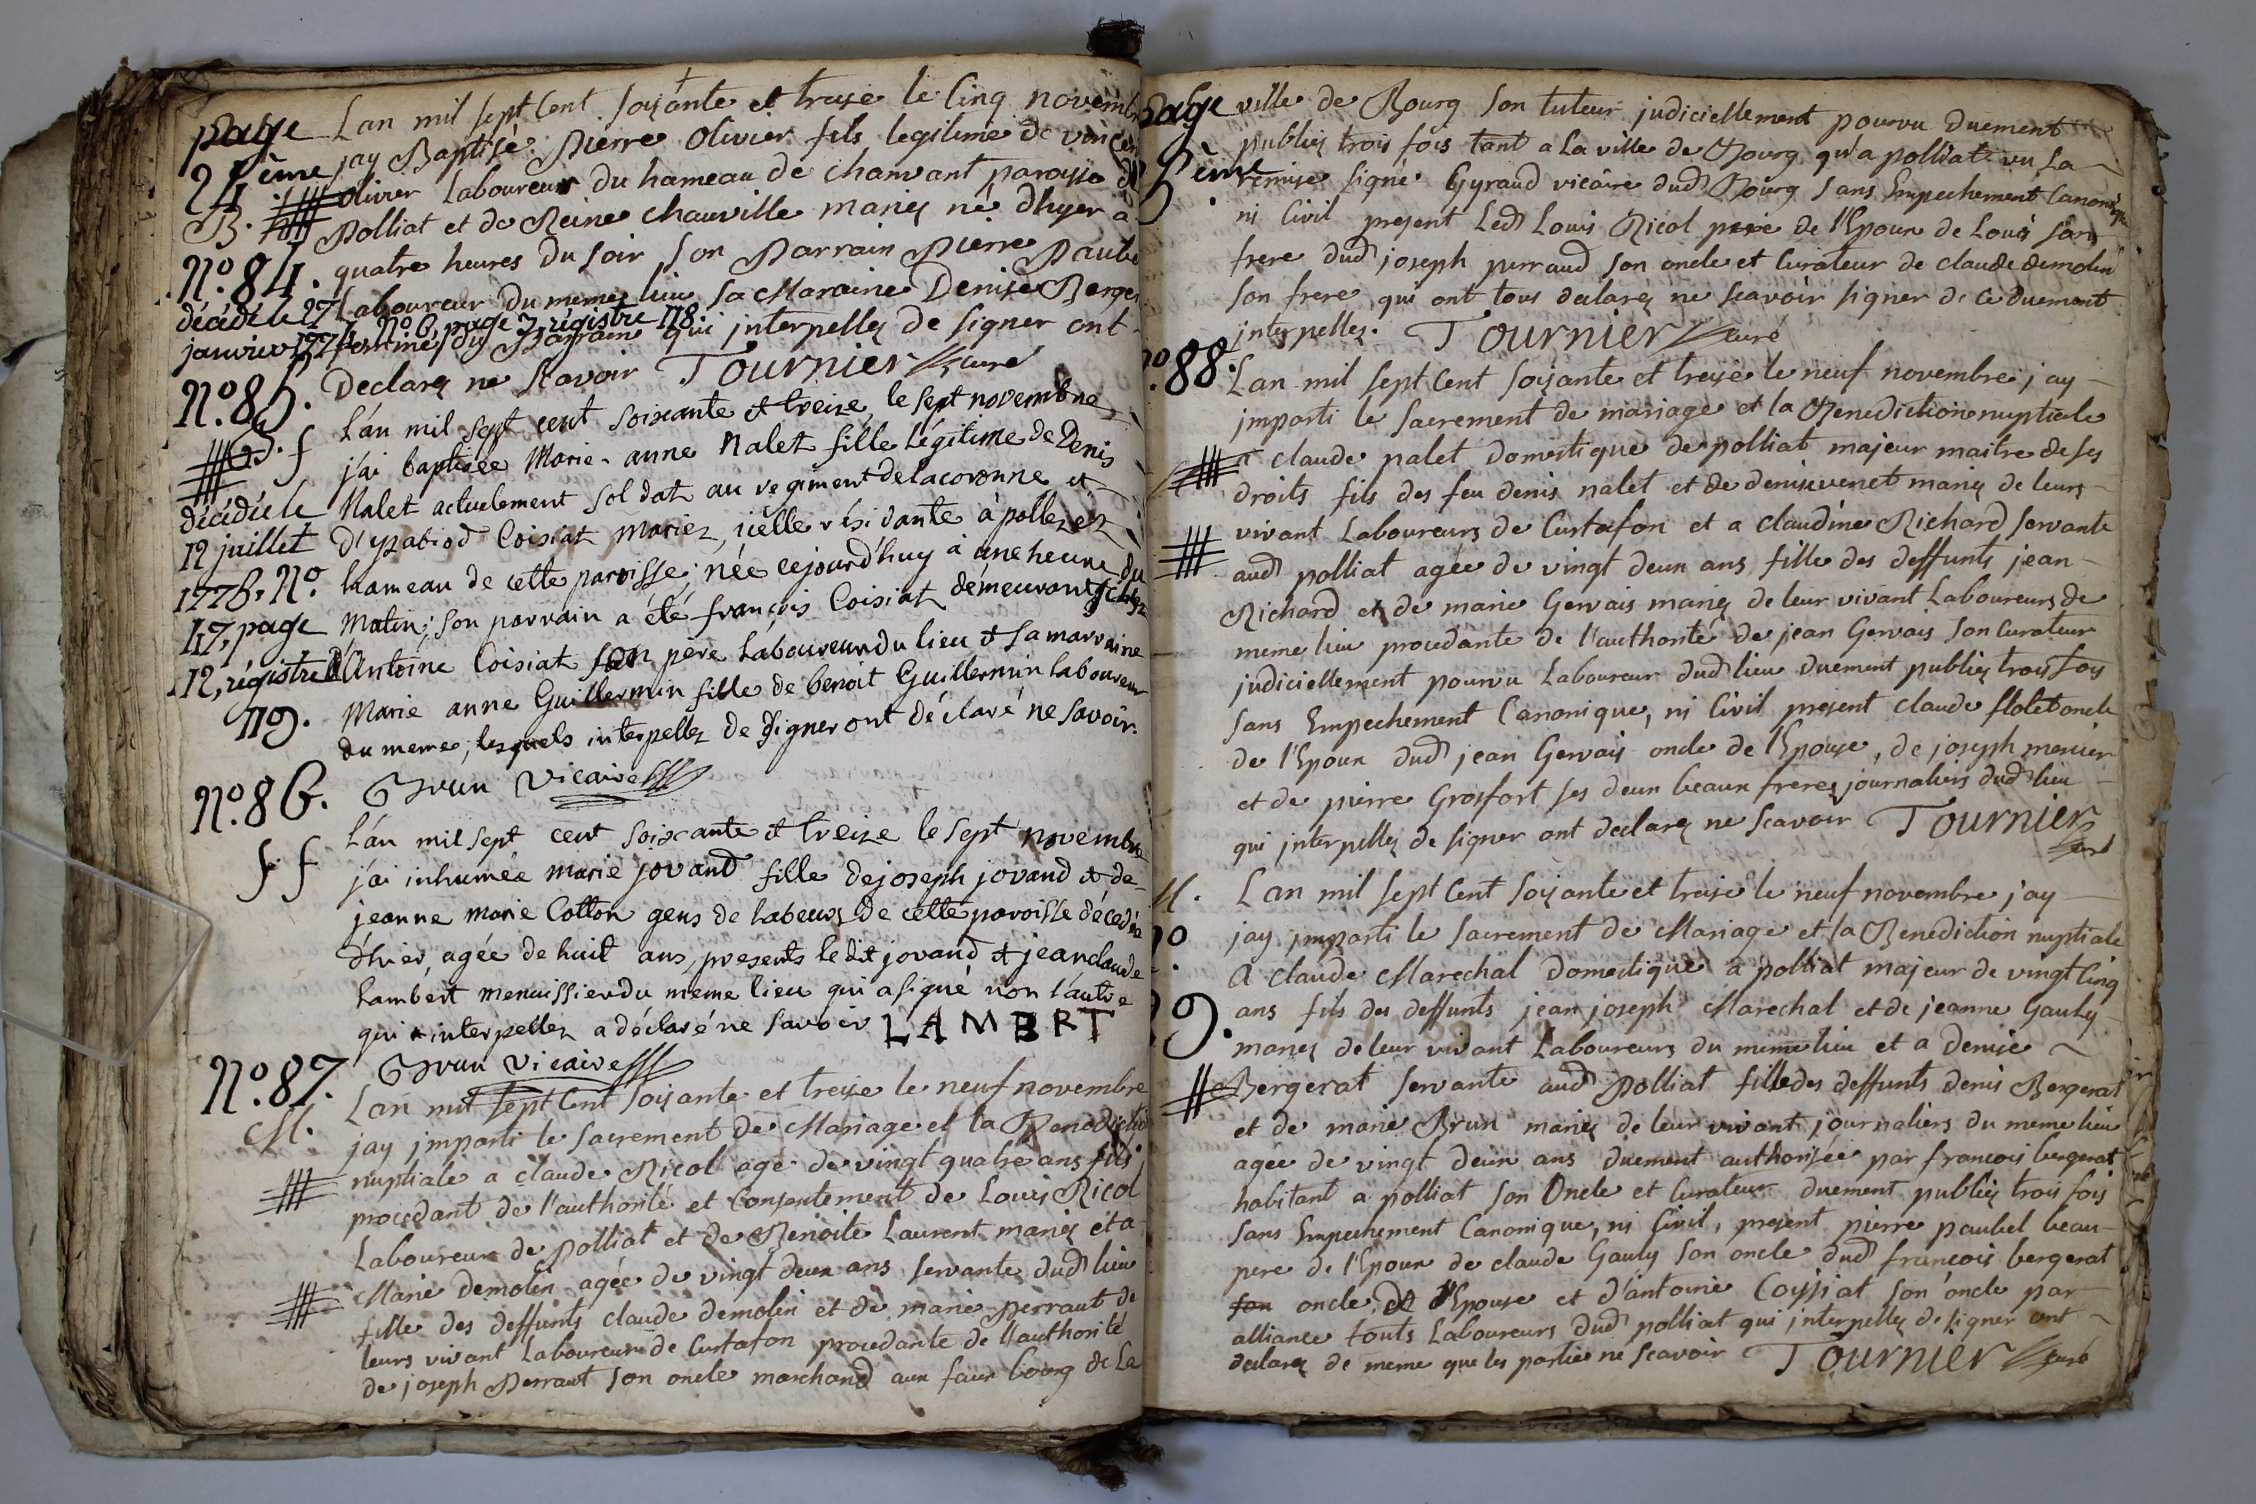 page
24ème
B.
Lan mil sept Cent soixante et treize le Cinq novemb
jay Baptisé Pierre Olivier fils legitime de vincen
olivier Laboureur du hameau de chanvant paroisse de
Polliat et de Reine chauville mariez né d'hyer a
N.º 84.
quatre heures du soir son Parrain Pierre Paube
Laboureur du meme lieu sa Maraine Denise Berger
décédé le 27
janvier 1774 N.º 6, page 3 régistre 118.
femme du Parrain qui interpellez de signer ont
Declarez ne scavoir Tournier curé
N.º 85.
B. f
L'an mil sept cent soixante et treize, le sept novembre
j'ai baptisée Marie-anne Nalet fille légitime de Denis
Nalet actuelement soldat au regiment de la couronne et
D' Coisiat mariez, icelle résidante à pollezez
hameau de cette paroisse; née cejourd'huy à une heure du
Matin; son parrain a été françois Coisiat demeurant chez
Antoine Coisiat son pere Laboureur du lieu et sa marraine
Marie anne Guillermin fille de benoit Guillermin laboureur
du meme, lesquels interpellez de signer ont déclaré ne savoir.
Brun Vicaire
décédée le
12 juillet
1778, N.º
47, page
12, régistre
119.
N.º 86.
f. f
L'an mil sept cent soixante et treize le sept novembre
j'ai inhumée marie jovand fille de joseph jovand et de
jeanne marie Cotton gens de labeur de cette paroisse décedée
d'hier, agée de huit ans, presents ledit jovand et jean claude
Lambert menuissier du meme lieu qui a signé non l'autre
qui interpellez a déclaré ne savoir LAMBRT
Brun Vicaire
N.º 87.
M.
Lan mil sept Cent soixante et treize le neuf novembre
jay imparti le sacrement de Mariage et la Benedictio
nuptiale a claude Nicol agé de vingt quatre ans fils
procedant de l'authorité et Consentement de Louis Nicol
Laboureur de Polliat et de Benoite Laurent mariez et a
Marie demolin agée de vingt deux ans servante dud lieu
fille des deffunts claude demolin et de marie Perraut de
leurs vivant Laboureur de Curtafon procedante de l'authorité
de joseph Perraut son oncle marchand aux faux bourg de La
page
ville de Bourg son tuteur judiciellement pourvu duement
publiez trois fois tant a La ville de Bourg qu'a polliat vu La
remise signé Gyraud vicaire dud Bourg sans Empechement Canoniq
ni Civil present Led Louis Nicol pere de l'Epoux de Louis son
frere dud joseph perraud son oncle et Curateur de claude demolin
son frere qui ont tous declarez ne scavoir signer de ce duement
interpellez. Tournier curé
N.º 88.
Lan mil sept Cent soixante et treize le neuf novembre jay
imparti le sacrement de mariage et la Benediction nuptiale
a claude palet domestique de polliat majeur maitre de ses
droits fils des feu denis nalet et de denise venet mariez de leurs
vivant Laboureurs de Curtafon et a claudine Richard servante
aud polliat agée de vingt deux ans fille des deffunts jean
Richard et de marie Gervais mariez de leur vivant Laboureurs de
meme lieu procedante de l'authorité de jean Gervais son Curateur
judiciellement pourvu Laboureur dud lieu duement publiez trois fois
sans Empechement Canonique, ni Civil present claude flolet oncle
de l'Epoux dud jean Gervais oncle de l'Epouse, de joseph mercier
et de pierre Grosfort ses deux beaux freres journaliers dud lieu
qui interpellez de signer ont declarez ne scavoir Tournier
curé
M.
N.º
89.
Lan mil sept Cent soixante et treize le neuf novembre jay
jay imparti le sacrement de Mariage et la Benediction nuptiale
a claude Marechal domestique a polliat majeur de vingt Cinq
ans fils des deffunts jean joseph Marechal et de jeanne Gauly
mariez de leur vivant Laboureurs du meme lieu et a Denise
Bergerat servante aud Polliat fille des deffunts denis Bergerat
et de marie Brun mariez de leur vivant journaliers du meme lieu
agée de vingt deux ans duement authorisée par francois bergerat
habitant a polliat son Oncle et Curateur duement publiez trois fois
sans Empechement Canonique, ni Civil, present pierre paubel beau
pere de l'Epoux de claude Gauly son oncle dud francois bergerat
son oncle de l'Epouse et d'antoine Coissiat son oncle par
alliance touts Laboureurs dud polliat qui interpellez de signer ont
declarez de meme que les parties ne scavoir Tournier curé